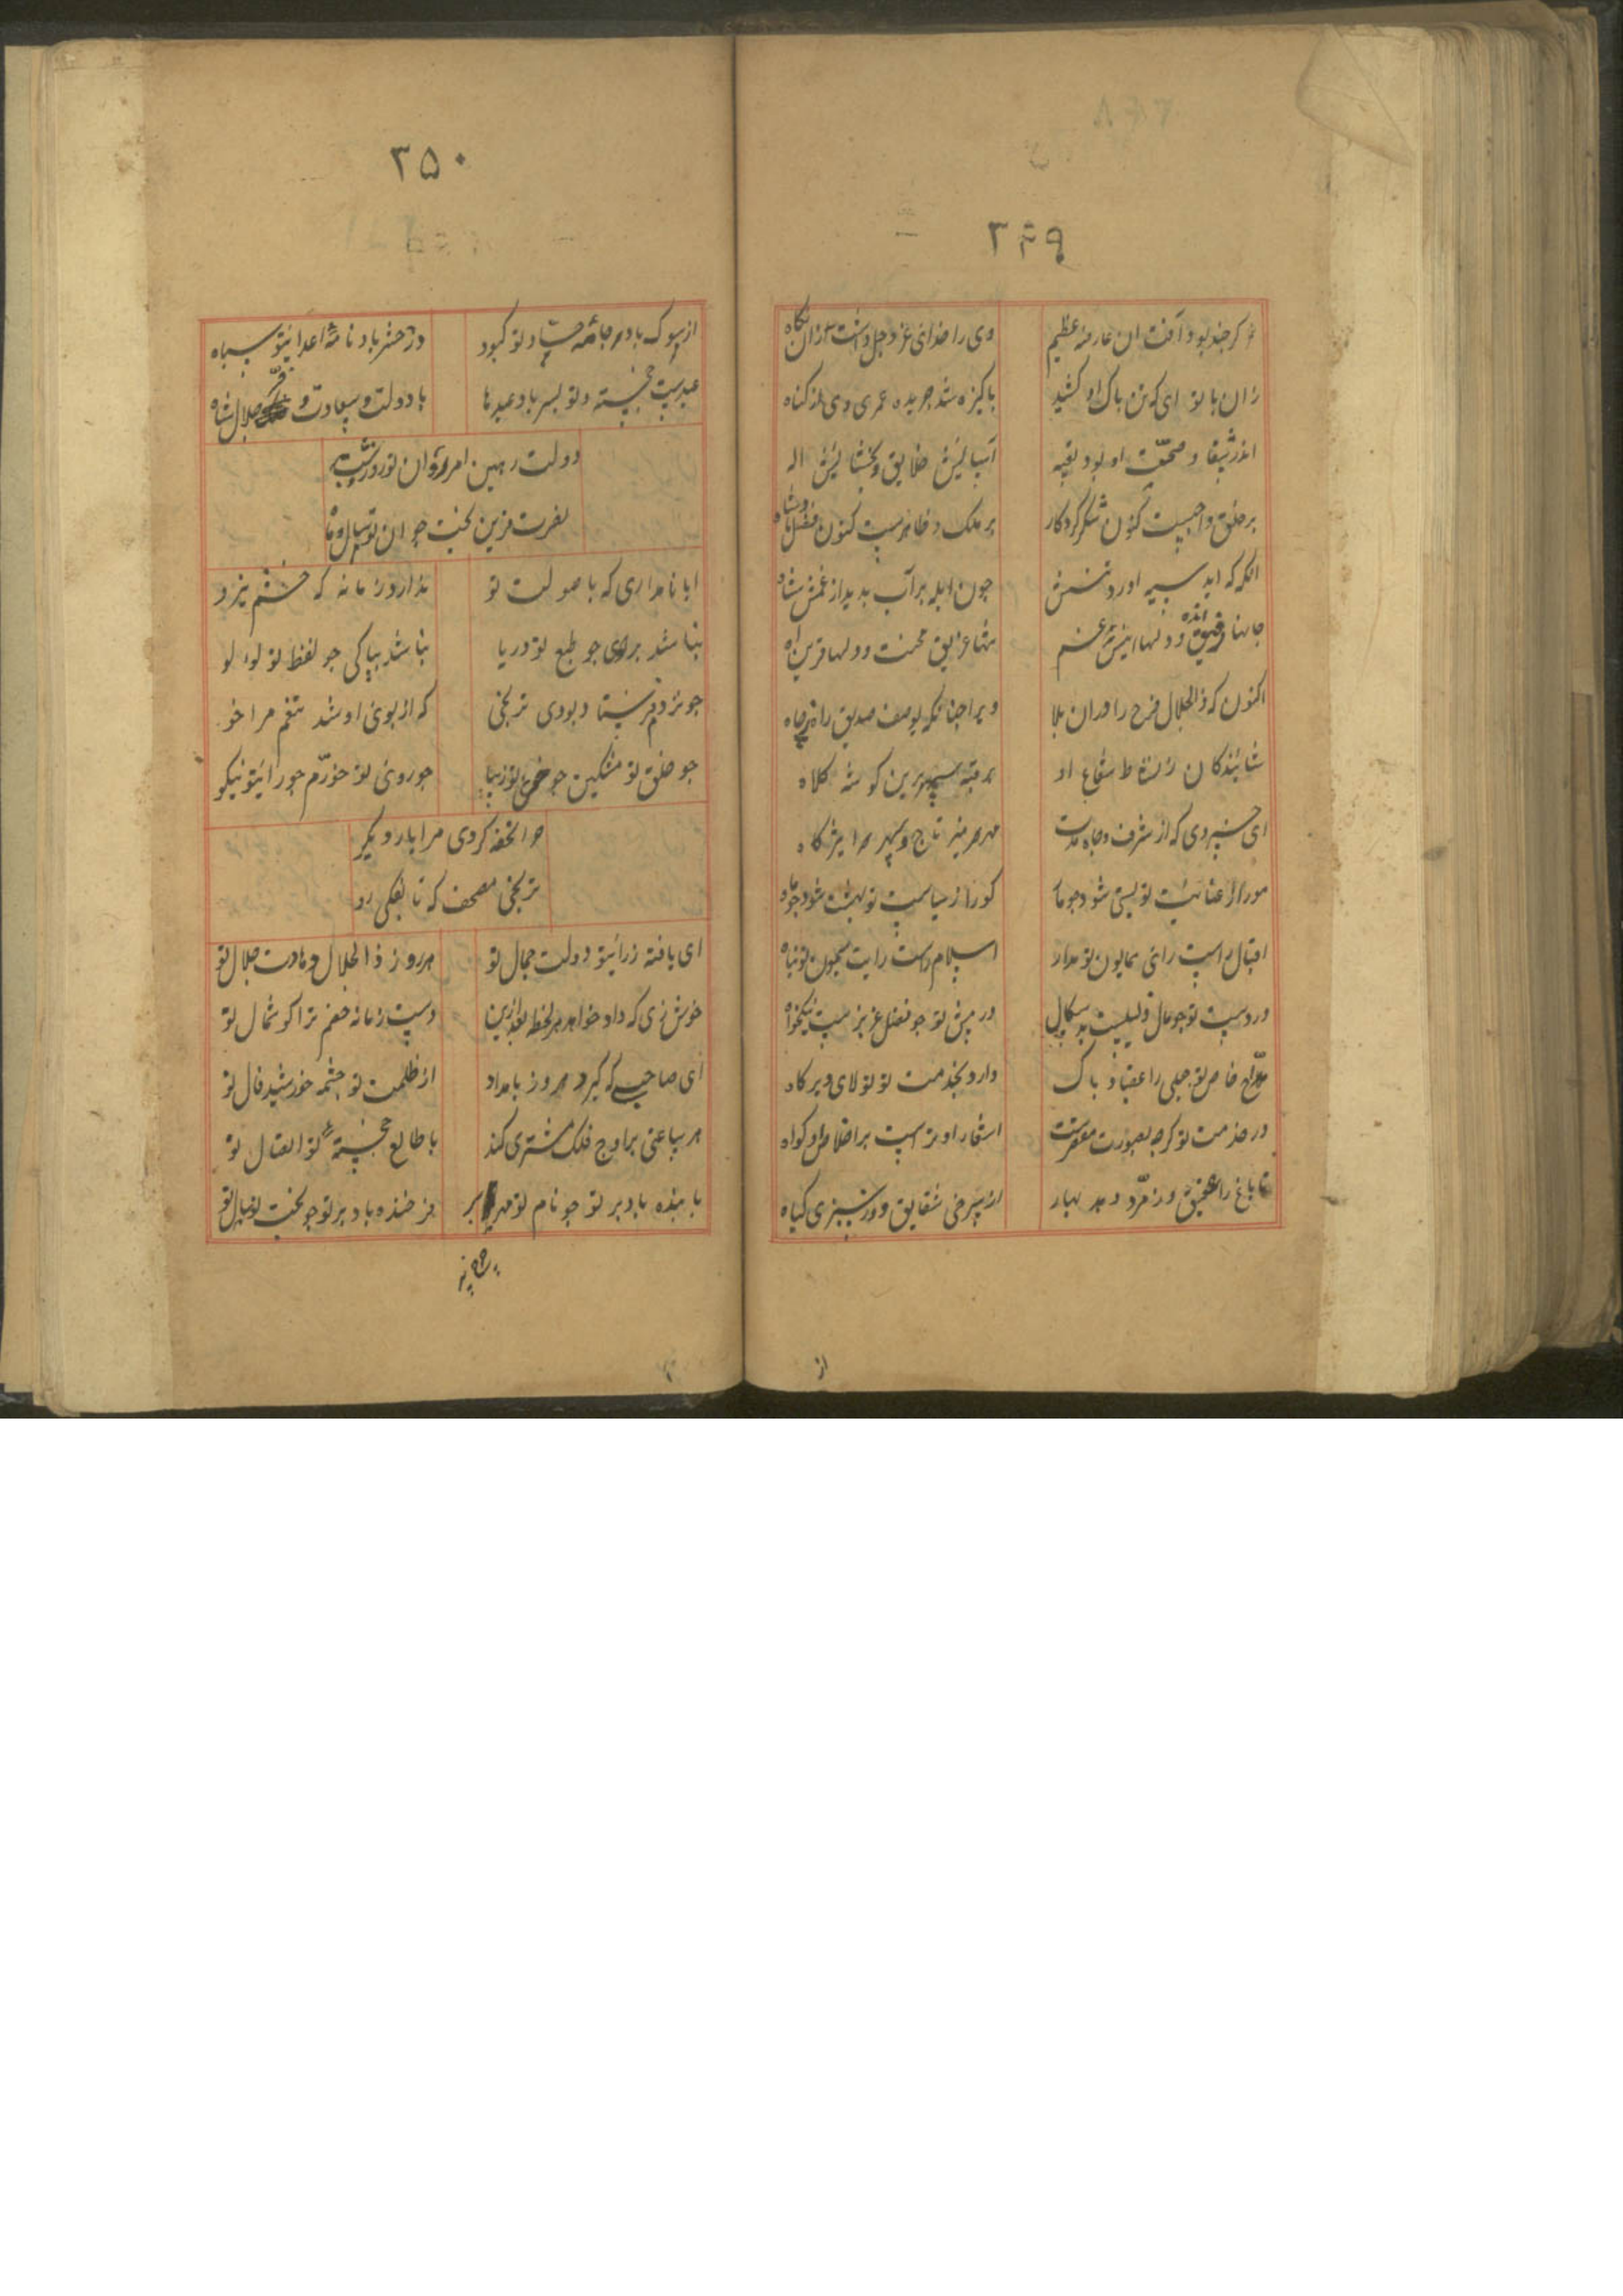 ۳۴۹
کر چند بود آفت ان عارضه عظیم
وی را خدای عز و جل داشت از ان نکاه
زان بالو ای که تن باک او کشید
باکیزه شد جریده عمر وی از کناه
اندر بقا و صحت او بود بقیه
آسایش خلایق و بخشایش اله
بر خلق واجبست کنون شکر کردکار
بر ملک ظاهرست کنون فضل بادشاه
انکه که ابله سپه اورد بر تنش
چون ابله بر آب بدید از غمش شاه
جانها رفیق انده و دلها انیس غم
تنها غریق محنت و دلها قرین اه
اکنون که ذو الجلال فرح داد از ان بلا
ویرا چنانکه یوصف صدیق را ز چاه
شاینده کان ز نشاط شعاع او
بر قبه سپهر برین کوشه کلاه
ای خسروی که از شرف و جاه مر تراست
مهر منیر تاج و سپهر برین کاه
مور از عنایت تو بسی شود چو ما
کور از سیاست تو بهشت شود چو چاه
اقبال راست رای همایون تو مدار
اسلام راست رایت میمون تو پناه
در دست تو چو مال ذلیلست بدسکال
در پیش تو چو فضل عزیزست نیکخواه
مداح خاص تو جبلی را عقیاد باک
دارد بخدمت تو تولای دیرکاه
در خدمت تو کرچه بصورت مقصرست
اشعار او بر است بر اخلاص او کواه
تا باغ را عقیق و زمرد دهد بهار
از سرخی شقایق و وز سبزی کیاه
از
۳۵۰
از سوک باد جامه حساد تو کبود
در حشر باد نامه اعدای تو سیاه
عیدیست خجسته و تو بسر باد عیدها
با دولت و سعادت و فر و جلال شاه
دولت رهین امر تو ان تو روز و شب
نصرت قرین بخت جوان تو سال و ماه
ایا نامداری که با صولت تو
ندارد زمانه که خشم نیرو
نباشد برادی چو طبع تو دریا
نباشد بپاکی چو لفظ تو لولو
چو نزدم فرستاده بودی ترنجی
که از بوی او شد تنم مرا خو
چو خلق تو مشکین چو خوی تو زیبا
چو روی تو خورم چو رای تو نیکو
چرا تحفه کردی مرا بار دیکر
ترنجی مصحف که تا بفکی رو
ای یافته ز رای تو دولت جمال تو
هر روز ذو الجلال و هادت جلال تو
خوش زی که داد خواهد هر لحظه بعد ازین
دست زمانه خصم ترا کوشمال تو
ای صاحبی که کیرد هر روز بامداد
از طلعت تو چشمه خورشید فال تو
هر ساعتی بر اوج فلک مشتری کند
با طالع خجسته تو اتصال تو
باینده باد بر تو چو نام تو مهر
فرخنده باد بر تو چو بخت تو سال تو